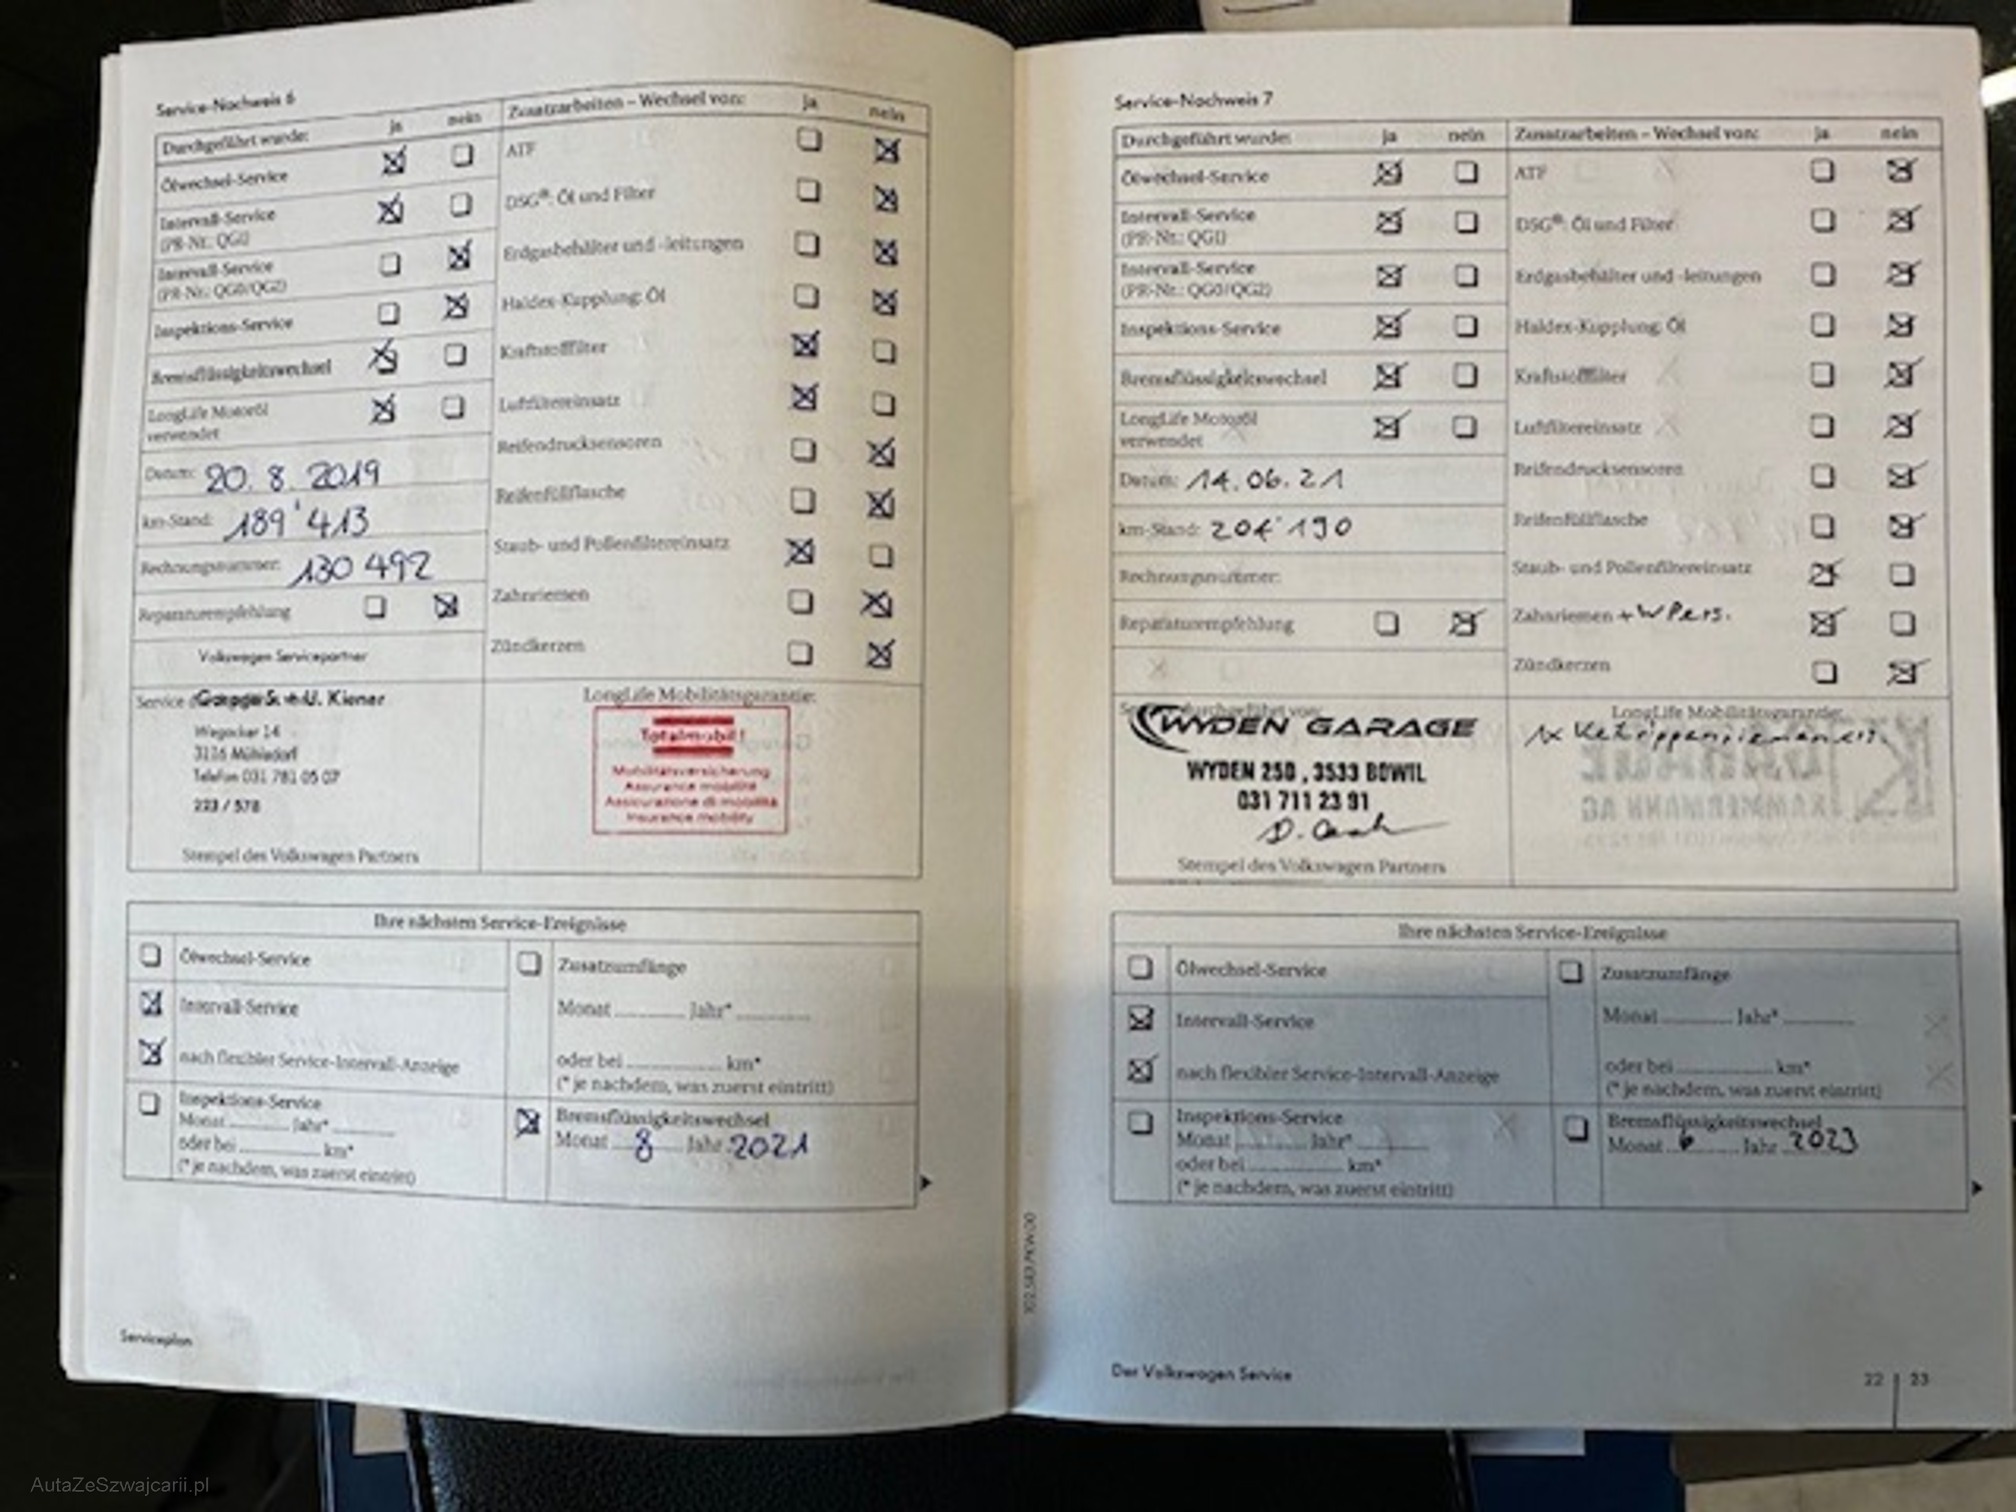 Service-Nachweis 6
Durchgeführt wurde: ja nein
Ölwechsel-Service
Intervall-Service
(PR-Nr.: QG1)
Intervall-Service
(PR-Nr.: QG0/QG2)
Inspektions-Service
Bremsflüssigkeitswechsel
LongLife Motoröl
verwendet
Datum: 20. 8. 2019
km-Stand: 189'413
Rechnungsnummer: 130 492
Reparaturempfehlung
Zusatzarbeiten – Wechsel von: ja nein
ATF
DSG®: Öl und Filter
Erdgasbehälter und -leitungen
Haldex-Kupplung: Öl
Kraftstofffilter
Luftfiltereinsatz
Reifendrucksensoren
Reifenfüllflasche
Staub- und Pollenfiltereinsatz
Zahnriemen
Zündkerzen
Volkswagen Servicepartner
Service
Garage S. + U. Kiener
Wegacker 14
3116 Mühledorf
Telefon 031 781 05 07
223 / 578
Stempel des Volkswagen Partners
LongLife Mobilitätsgarantie:
Totalmobil!
Mobilitätsversicherung
Assurance mobilité
Assicurazione di mobilità
Insurance mobility
Ihre nächsten Service-Ereignisse
Ölwechsel-Service
Intervall-Service
nach flexibler Service-Intervall-Anzeige
Inspektions-Service
Monat Jahr*
oder bei km*
(* je nachdem, was zuerst eintritt)
Zusatzumfänge
Monat Jahr*
oder bei km*
(* je nachdem, was zuerst eintritt)
Bremsflüssigkeitswechsel
Monat 8 Jahr 2021
Serviceplan
Service-Nachweis 7
Durchgeführt wurde: ja nein
Ölwechsel-Service
Intervall-Service
(PR-Nr.: QG1)
Intervall-Service
(PR-Nr.: QG0/QG2)
Inspektions-Service
Bremsflüssigkeitswechsel
LongLife Motoröl
verwendet
Datum: 14.06.21
km-Stand: 204'190
Rechnungsnummer:
Reparaturempfehlung
Zusatzarbeiten – Wechsel von: ja nein
ATF
DSG®: Öl und Filter
Erdgasbehälter und -leitungen
Haldex-Kupplung: Öl
Kraftstofffilter
Luftfiltereinsatz
Reifendrucksensoren
Reifenfüllflasche
Staub- und Pollenfiltereinsatz
Zahnriemen +
Zündkerzen
durchgeführt von:
WYDEN GARAGE
WYDEN 250, 3533 BOWIL
031 711 23 91
Stempel des Volkswagen Partners
LongLife Mobilitätsgarantie:
1x
Ihre nächsten Service-Ereignisse
Ölwechsel-Service
Intervall-Service
nach flexibler Service-Intervall-Anzeige
Inspektions-Service
Monat Jahr*
oder bei km*
(* je nachdem, was zuerst eintritt)
Zusatzumfänge
Monat Jahr*
oder bei km*
(* je nachdem, was zuerst eintritt)
Bremsflüssigkeitswechsel
Monat 6 Jahr 2023
Der Volkswagen Service
22 | 23
AutaZeSzwajcarii.pl